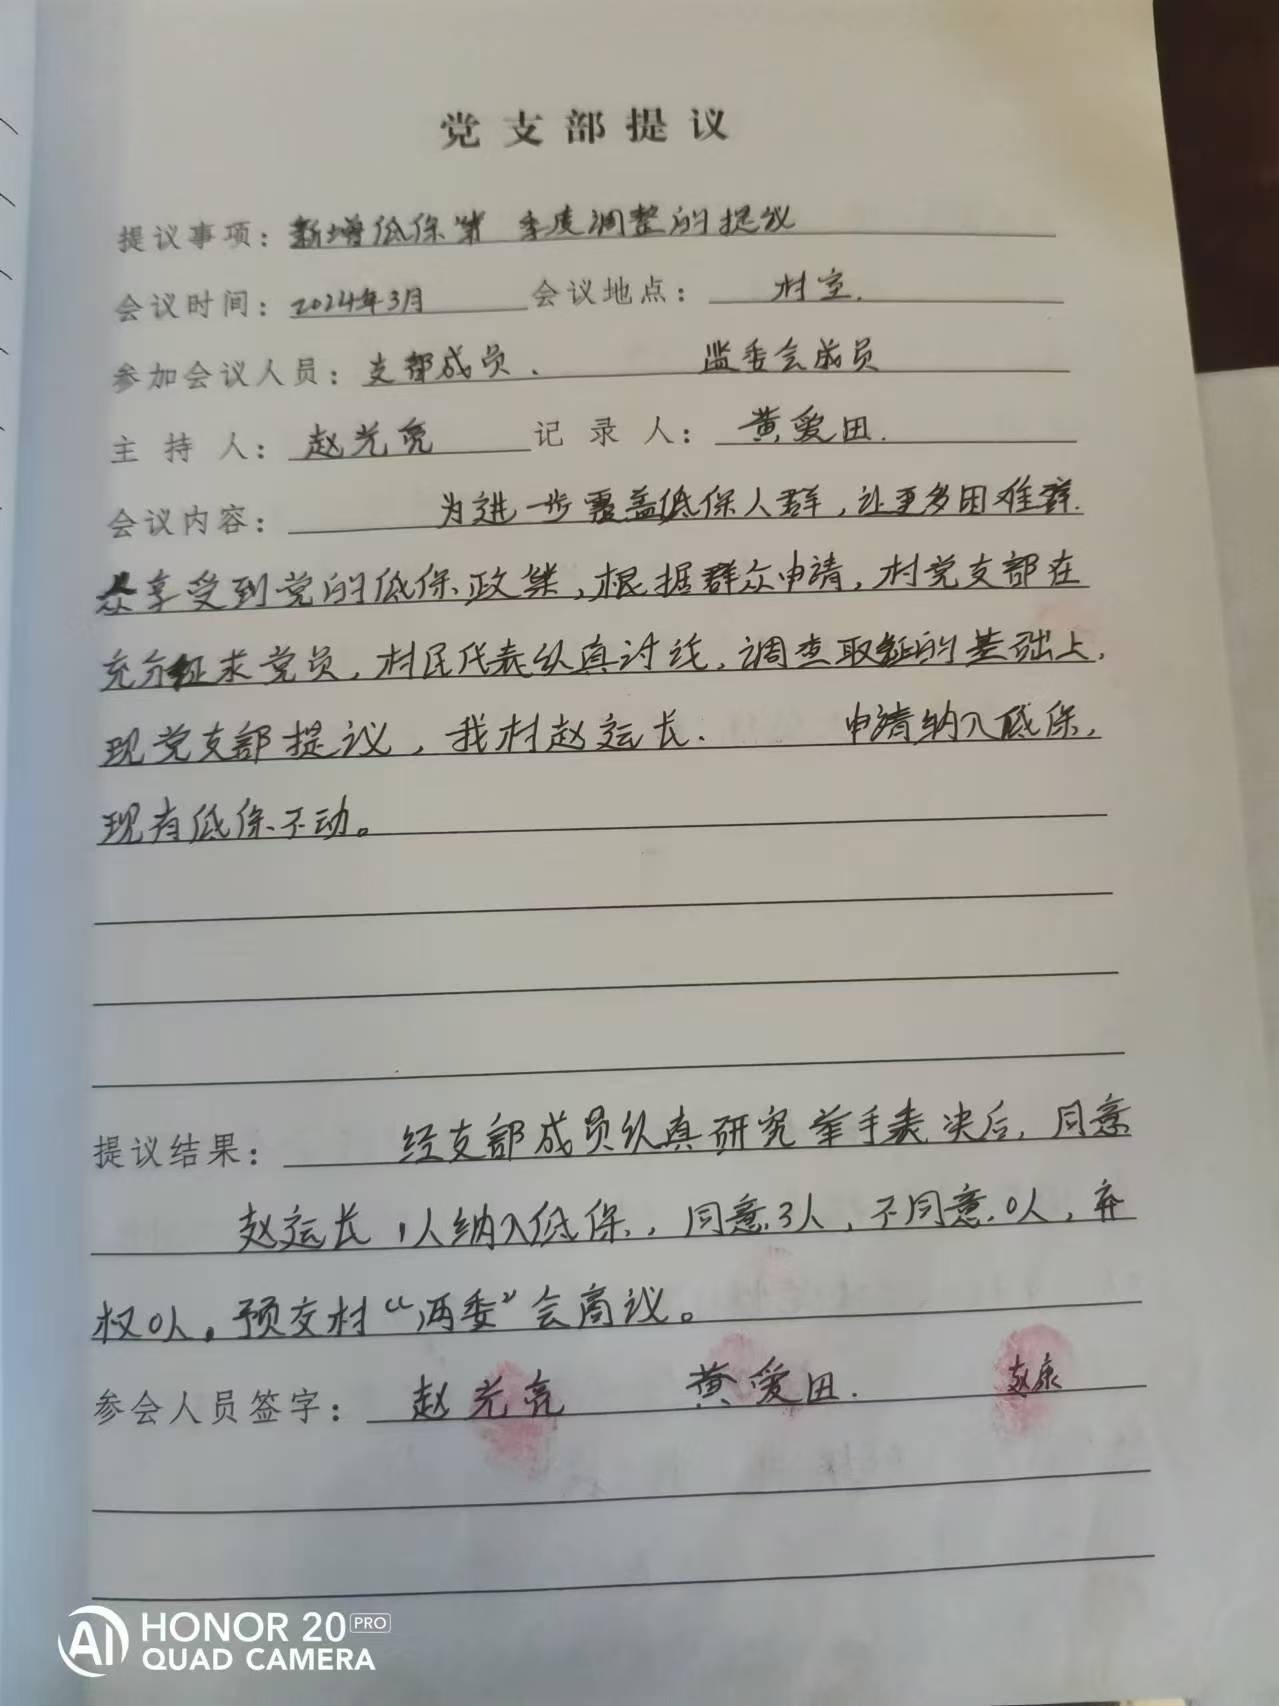 党支部提议
提议事项：新增低保第 季度调整的提议
会议时间：2024年3月 会议地点：村室.
参加会议人员：支部成员. 监委会成员
主持人：赵光亮 记录人：黄爱田.
会议内容： 为进一步覆盖低保人群，让更多困难群.
众享受到党的低保政策，根据群众申请，村党支部在
充分征求党员，村民代表认真讨论，调查取证的基础上，
现党支部提议，我村赵运长. 申请纳入低保，
现有低保不动。
提议结果： 经支部成员认真研究举手表决后，同意
赵运长1人纳入低保，同意3人，不同意0人，弃
权0人。预交村“两委”会商议。
参会人员签字： 赵光亮 黄爱田. 赵康
AI HONOR 20 PRO
QUAD CAMERA